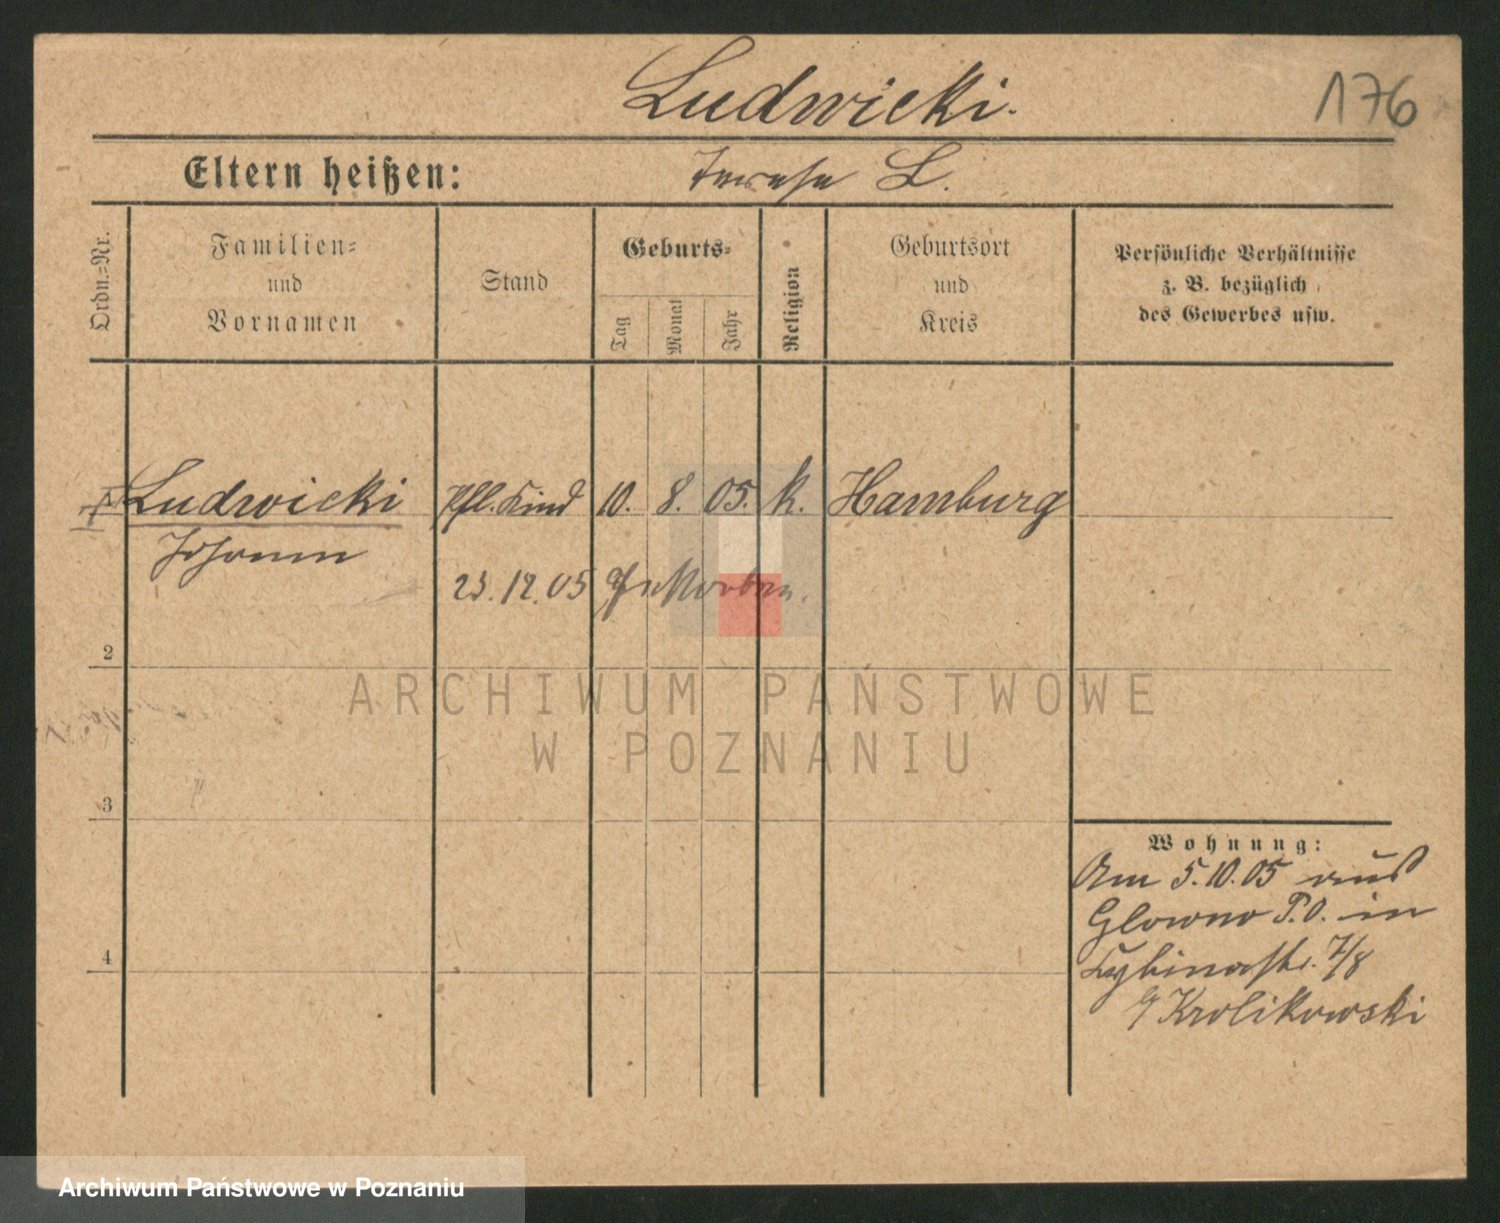 Ludwicki.
176
Eltern heißen:
Terese L.
Ordn.=Nr.
Familien=
und
Vornamen
Stand
Geburts=
Tag
Monat
Jahr
Religion
Geburtsort
und
Kreis
Persönliche Verhältnisse
z. B. bezüglich
des Gewerbes usw.
Ludwicki Pfl. Kind 10. 8. 05. k. Hamburg
Johann
23. 12. 05 Gestorben.
2
ARCHIWUM PAŃSTWOWE
W POZNANIU
3
Wohnung:
Am 5.10.05 aus
Glowno P.O. in
Cybinastr. 7/8
b/ Krolikowski
4
Archiwum Państwowe w Poznaniu